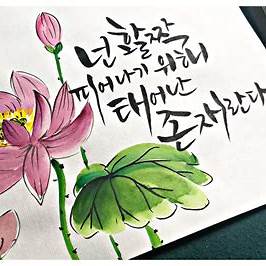 넌 활짝
피어나기 위해
태어난
존재란다